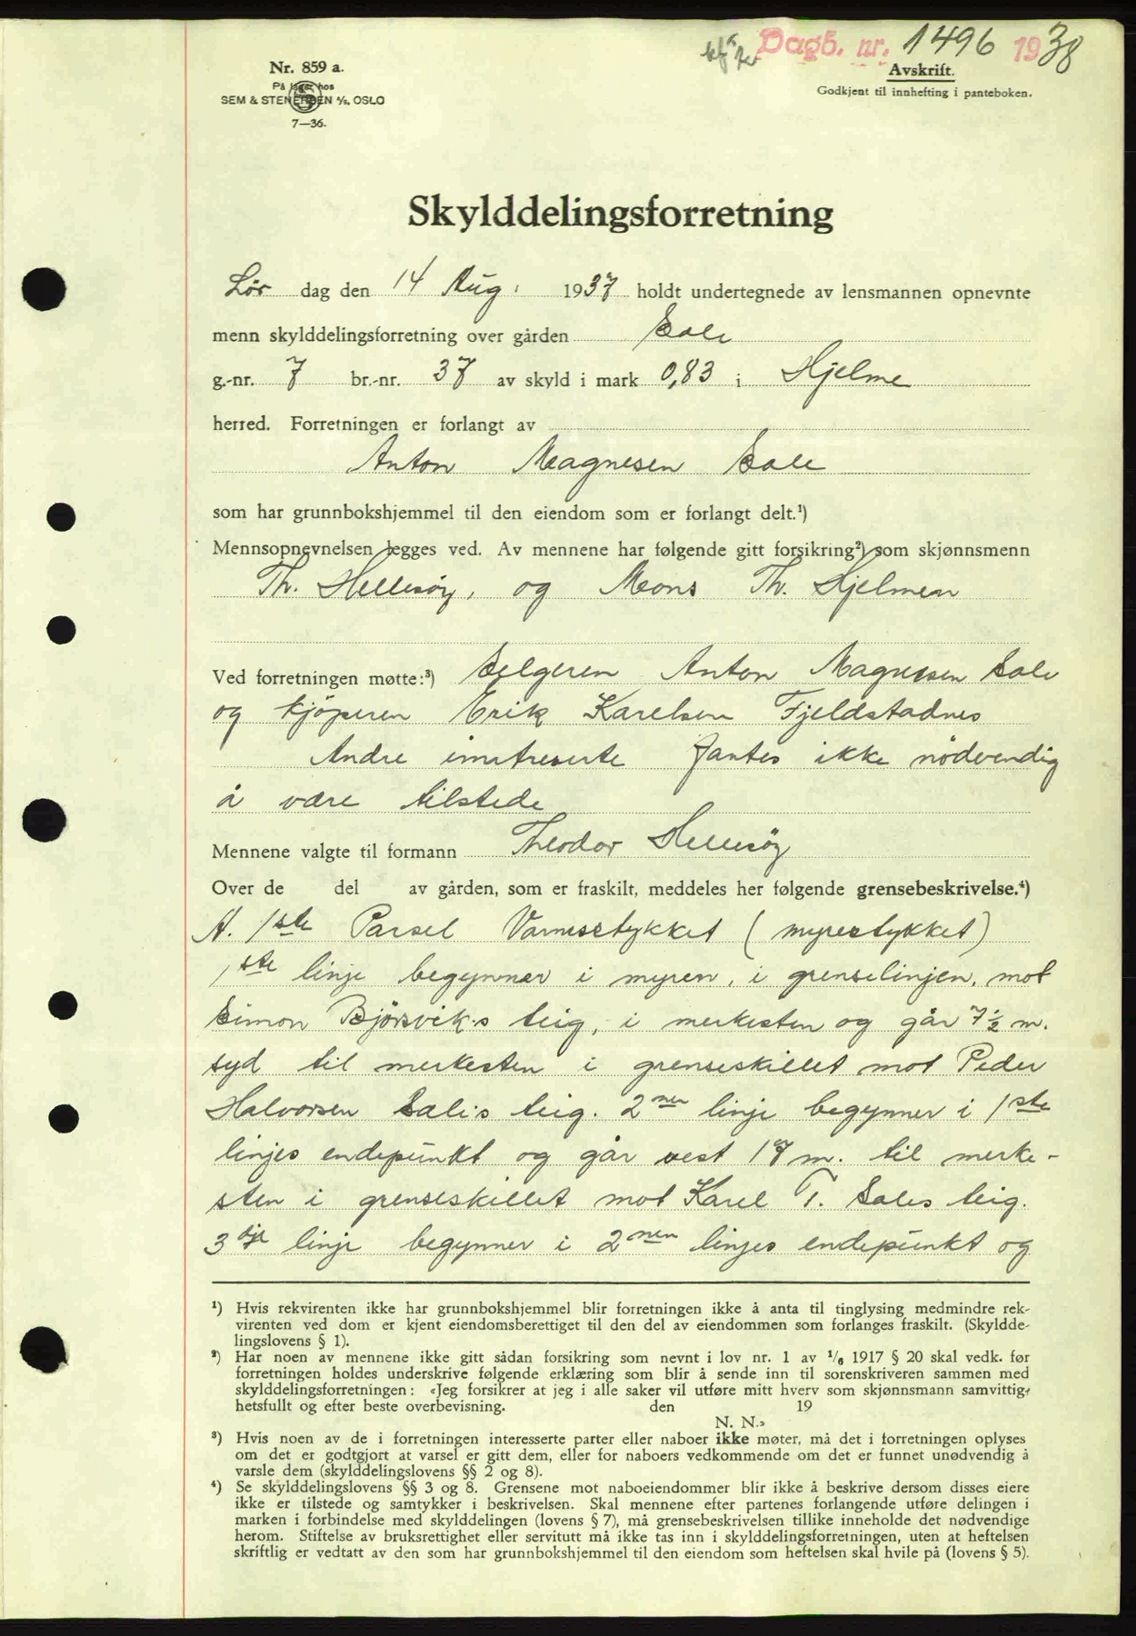 Dagb. nr. 1496 1938
Nr. 859 a.
På lager hos
SEM & STENERSEN A/S, OSLO
7—36.
Avskrift.
Godkjent til innhefting i panteboken.
Skylddelingsforretning
Lør dag den 14 Aug. 1937 holdt undertegnede av lensmannen opnevnte
menn skylddelingsforretning over gården Sale
g.-nr. 7 br.-nr. 37 av skyld i mark 0,83 i Hjelme
herred. Forretningen er forlangt av
Anton Magnesen Sale
som har grunnbokshjemmel til den eiendom som er forlangt delt.¹)
Mennsopnevnelsen legges ved. Av mennene har følgende gitt forsikring²) som skjønnsmenn
Th. Hellesöy, og Mons Th. Hjelmen
Ved forretningen møtte:³) Selgeren Anton Magnesen Sale
og kjöperen Erik Karelsen Fjeldstadnes
Andre imtreserte fantes ikke nödvendig
å være tilstede
Mennene valgte til formann Theodor Hellesöy
Over de del av gården, som er fraskilt, meddeles her følgende grensebeskrivelse.⁴)
A. 1ste Parsel Varnesstykket (myrestykket)
1ste linje begynner i myren, i grenselinjen, mot
Simon Björsvik's teig, i merkesten og går 7½ m.
syd til merkesten i grenseskillet mot Peder
Halvorsen Sale's teig. 2ner linje begynner i 1ste
linjes endepunkt og går vest 17 m. til merke-
sten i grenseskillet mot Karel T. Sales teig.
3dje linje begynner i 2nen linjes endepunkt og
¹) Hvis rekvirenten ikke har grunnbokshjemmel blir forretningen ikke å anta til tinglysing medmindre rek-
virenten ved dom er kjent eiendomsberettiget til den del av eiendommen som forlanges fraskilt. (Skyldde-
lingslovens § 1).
²) Har noen av mennene ikke gitt sådan forsikring som nevnt i lov nr. 1 av 1/6 1917 § 20 skal vedk. før
forretningen holdes underskrive følgende erklæring som blir å sende inn til sorenskriveren sammen med
skylddelingsforretningen: «Jeg forsikrer at jeg i alle saker vil utføre mitt hverv som skjønnsmann samvittig-
hetsfullt og efter beste overbevisning. den 19
N. N.»
³) Hvis noen av de i forretningen interesserte parter eller naboer ikke møter, må det i forretningen oplyses
om det er godtgjort at varsel er gitt dem, eller for naboers vedkommende om det er funnet unødvendig å
varsle dem (skylddelingslovens §§ 2 og 8).
⁴) Se skylddelingslovens §§ 3 og 8. Grensene mot naboeiendommer blir ikke å beskrive dersom disses eiere
ikke er tilstede og samtykker i beskrivelsen. Skal mennene efter partenes forlangende utføre delingen i
marken i forbindelse med skylddelingen (lovens § 7), må grensebeskrivelsen tillike inneholde det nødvendige
herom. Stiftelse av bruksrettighet eller servitutt må ikke tas inn i skylddelingsforretningen, uten at heftelsen
skriftlig er vedtatt av den som har grunnbokshjemmel til den eiendom som heftelsen skal hvile på (lovens § 5).